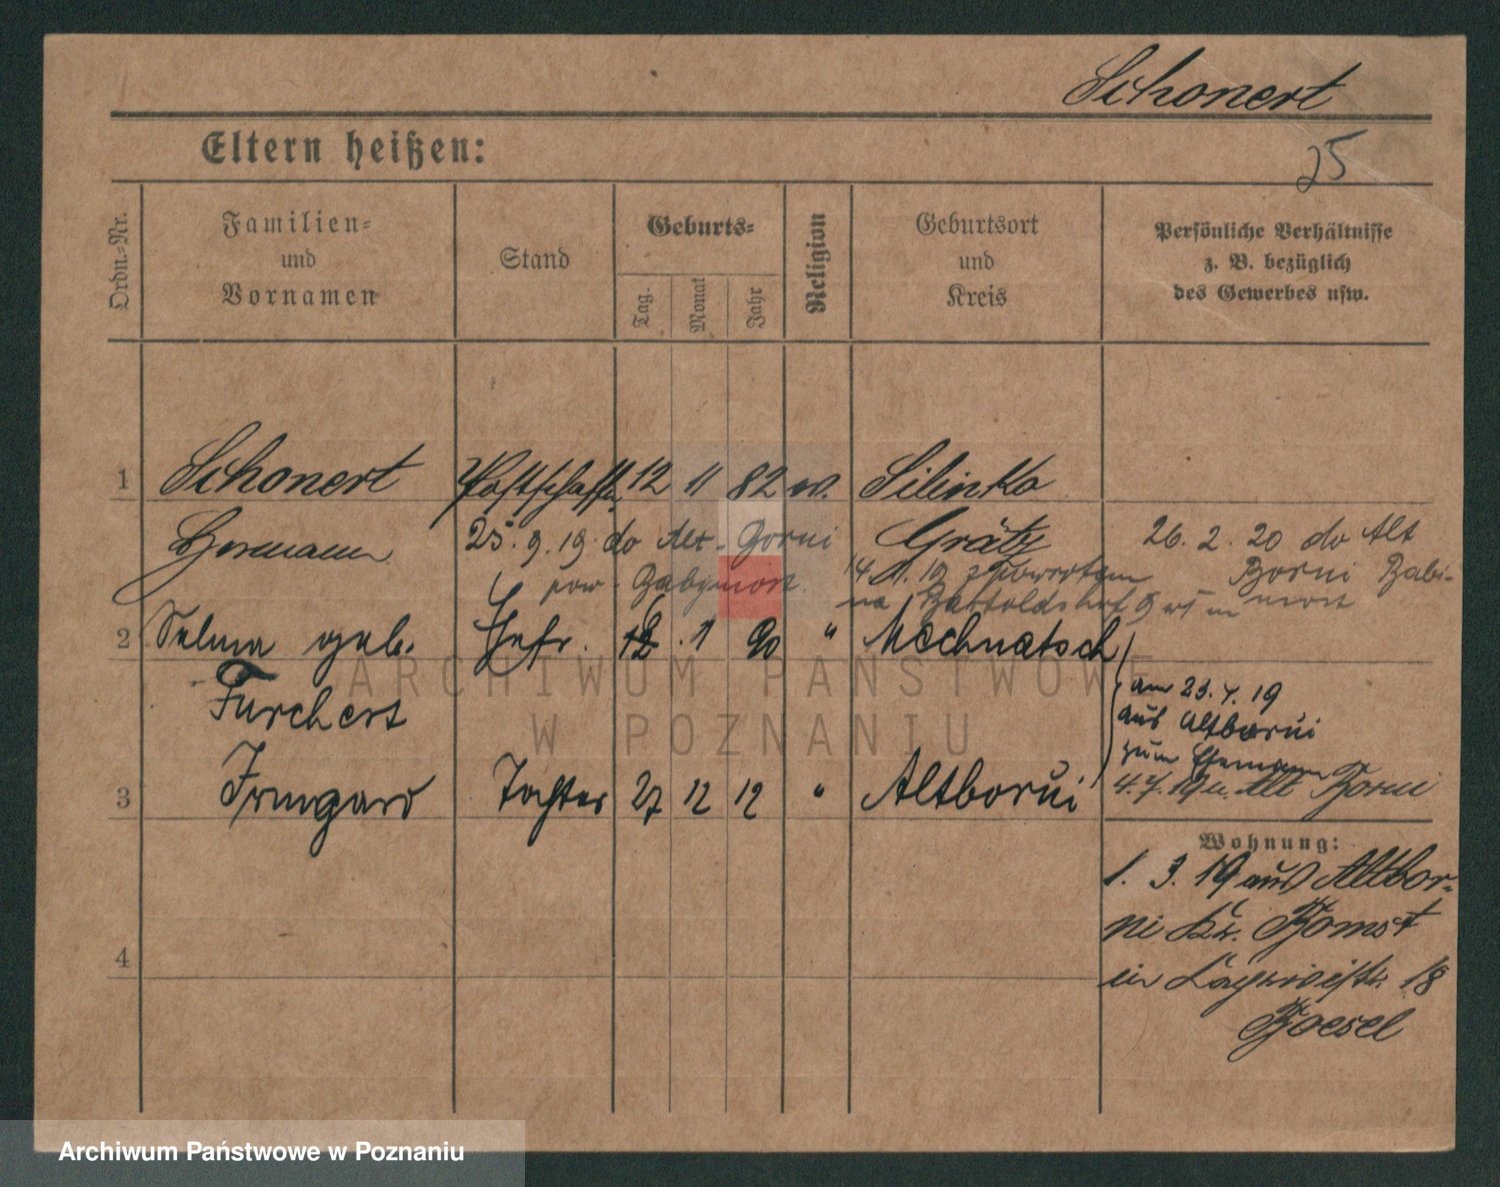 Schonert
25
Eltern heißen:
Ordn.-Nr.
Familien-
und
Vornamen
Stand
Geburts-
Tag.
Monat
Jahr
Religion
Geburtsort
und
Kreis
Persönliche Verhältnisse
z. B. bezüglich
des Gewerbes usw.
1 Schonert Postschaffn. 12 11 82 ev. Silinko
Hermann 25. 9. 19. do Alt-Gorni Grätz 26. 2. 20 do Alt
pow. Babimost. 14. 11. 19 z powrotem Borui Babi-
na Bartoldshof 9 most
2 Selma geb. Ehefr. 12 . 1 90 " Mechnatsch
Furchert
am 23. 4. 19
aus Altborui
zum Ehemann
3 Irmgard Tochter 27 12 12 " Altborui 4. 7. 19 n. Alt Borui
Wohnung:
1. 3. 19 aus Altbor-
ui Kr. Bomst
4 in 18
Boesel
ARCHIWUM PAŃSTWOWE
W POZNANIU
Archiwum Państwowe w Poznaniu